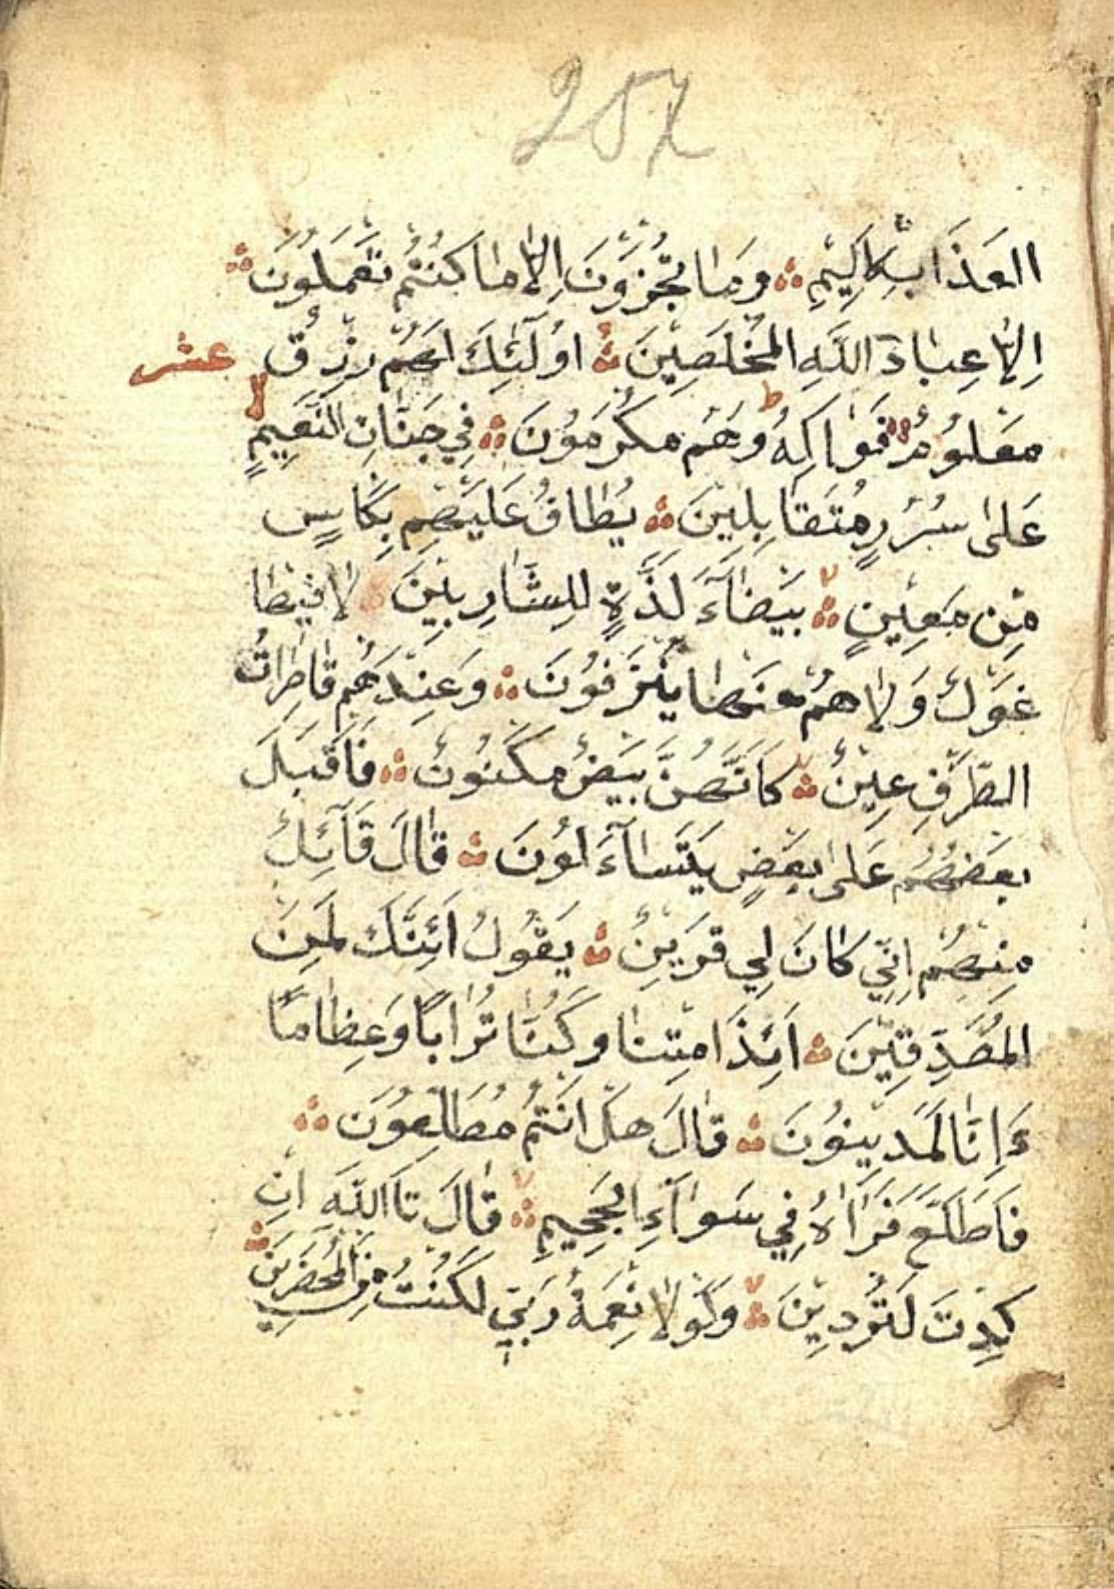 257
العَذَابِ الاَلِيْمِ وَمَا تُجْزَوْنَ اِلاَّ مَا كُنْتُمْ تَعْمَلُوْنَ
اِلاَّ عِبَادَ اللَّهِ المُخْلَصِيْنَ اوُلَٓئِكَ لَهُمْ رِزْقٌ عشر
مَعْلُوْمٌ فَوَاكِهُ وَهُم مُكْرَمُوْنَ فِي جَنَّاتِ النَّعِيْمِ
عَلىٰ سُرُرٍ مُتَقَابِلِيْنَ يُطَافُ عَلَيْهِم بِكَاسٍ
مِّن مَعِيْنٍ بَيْضَآءَ لَذَّةٍ لِلشَّارِبِيْنَ لا فِيْهَا
غَوْلٌ وَلا هُمْ عَنْهَا يُنْزَفُوْنَ وَعِنْدَهُمْ قَاصِرَاتُ
الطَّرْفِ عِيْنٌ كَاَنَّهُنَّ بَيْضٌ مَكْنُوْنٌ فَاَقْبَلَ
بَعْضُهُمْ عَلىٰ بَعْضٍ يَتَسَآءَلُوْنَ قَالَ قَآئِلٌ
مِنْهُمْ اِنِّي كَانَ لِي قَرِيْنٌ يَقُوْلُ اَئِنَّكَ لَمِنَ
المُصَدِّقِيْنَ اَئِذَا مِتْنَا وَكُنَّا تُرَابًا وَعِظَامًا
ءَاِنَّا لَمَدِيْنُوْنَ قَالَ هَلْ اَنْتُمْ مُطَّلِعُوْنَ
فَاطَّلَعَ فَرَاٰهُ فِي سَوَآءِ الجَحِيْمِ قَالَ تَاللَّهِ اِنْ
كِدْتَ لَتُرْدِيْنَ وَلَوْلا نِعْمَةُ رَبِّي لَكُنْتُ مِنَ المُحْضَرِيْنَ